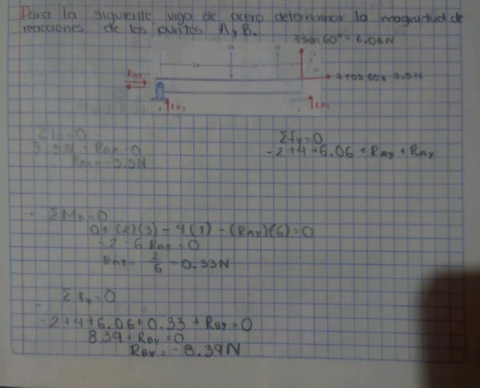 Para la siguiente viga de acero determinar la magnitud de
reacciones de los puntos A y B.
7sen60°= 6.06N
7cos60= 3.5N
ΣFx=0
3.5N + RAx=0
RAx= -3.5N
ΣFy=0
-2+4+6.06+RAy+RBy
ΣMB=0
0+(2)(3)-4(1)-(RAy)(6)=0
-2-6RAy=0
RAy= 2/6 = 0.33N
ΣFy=0
-2+4+6.06+0.33+RBy=0
8.39+RBy=0
RBy=-8.39N